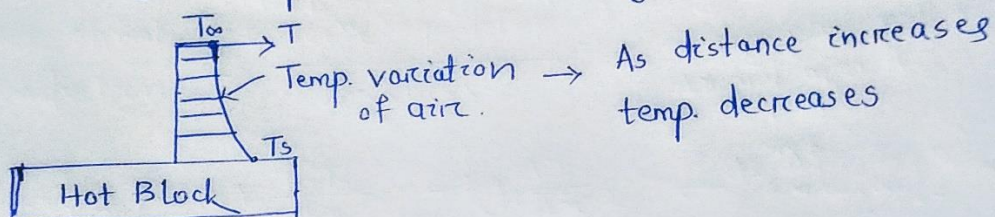 T∞
T
Temp. variation → As distance increases
of air. temp. decreases
Ts
Hot Block